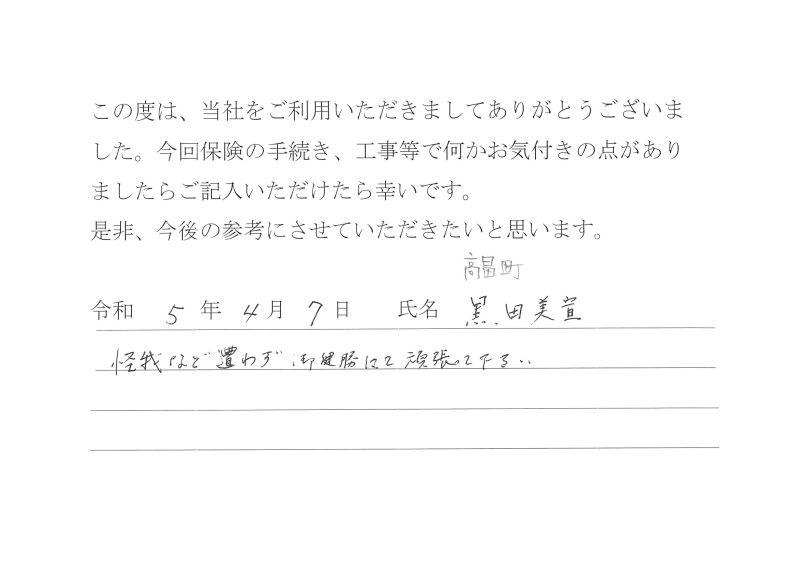 この度は、当社をご利用いただきましてありがとうございま
した。今回保険の手続き、工事等で何かお気付きの点があり
ましたらご記入いただけたら幸いです。
是非、今後の参考にさせていただきたいと思います。
高畠町
令和 5 年 4 月 7 日 氏名 黒田美宣
怪我など遭わず御健勝にて頑張て下さい